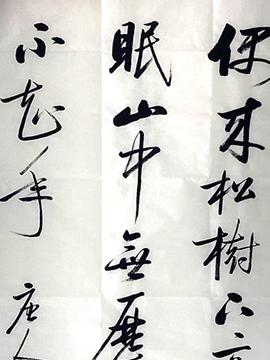 偶来松樹下
眠山中無歷
不知年 唐人